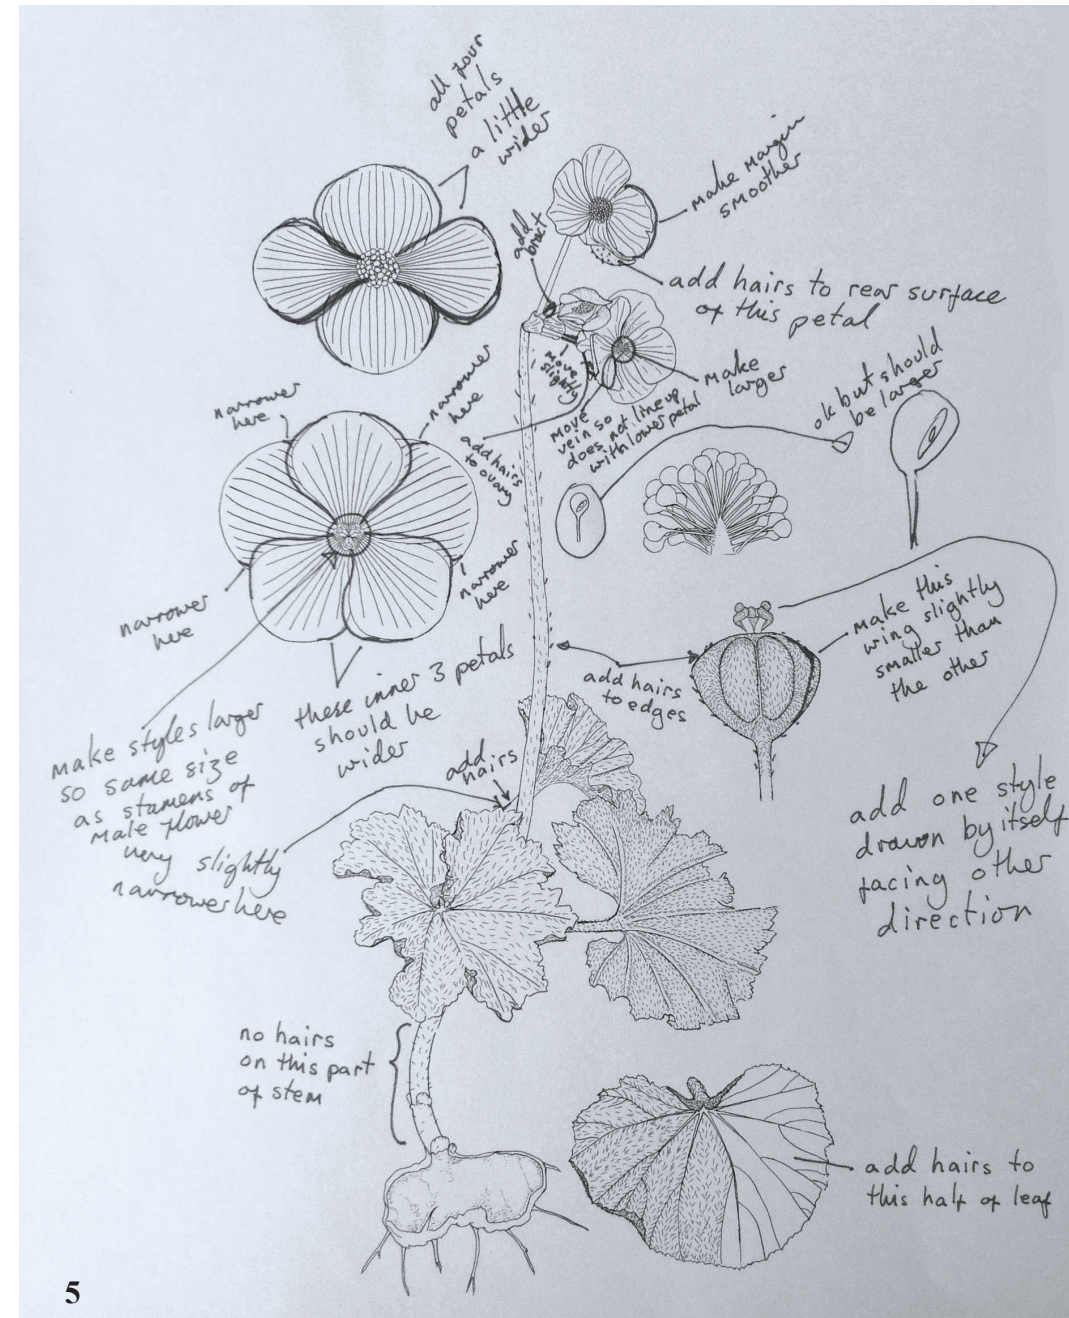 all four
petals
a little
wider
make margin
smoother
add
bract
add hairs to rear surface
of this petal
move
slightly
make
larger
narrower
here
narrower
here
add hairs
to ovary
move
vein so
does not line up
with lower petal
ok but should
be larger
narrower
here
narrower
here
make this
wing slightly
smaller than
the other
add hairs
to edges
these inner 3 petals
should be
wider
make styles larger
so same size
as stamens of
male flower
add
hairs
very slightly
narrower here
add one style
drawn by itself
facing other
direction
no hairs
on this part
of stem
add hairs to
this half of leaf
5